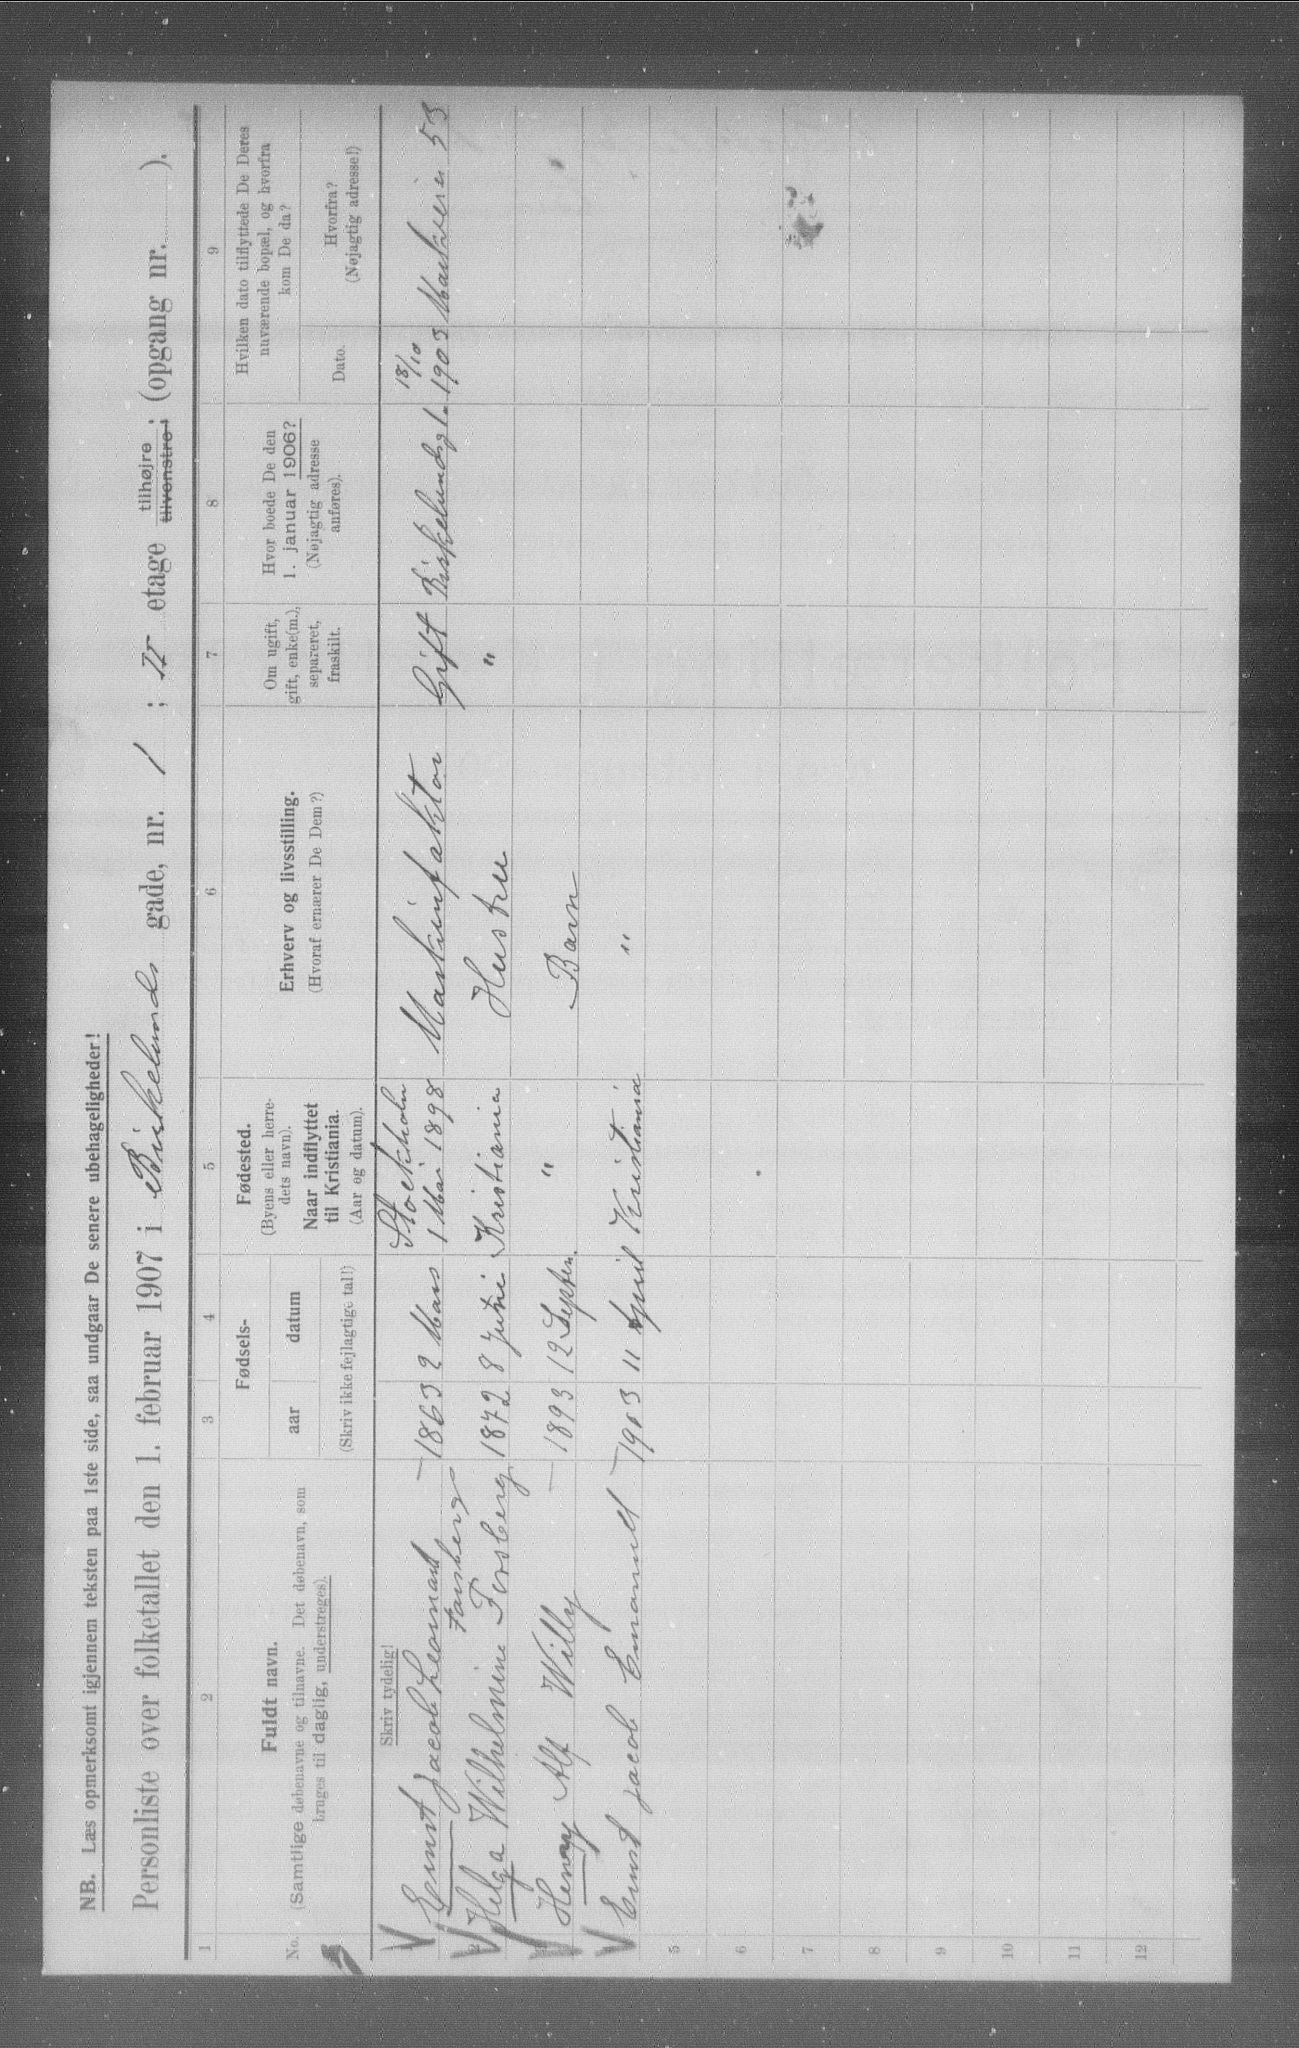 NB. Læs opmerksomt igjennem teksten paa 1ste side, saa undgaar De senere ubehageligheder!
Personliste over folketallet den 1. februar 1907 i Birkelunds gade, nr. 1 ; IV etage tilhøjre ; tilvenstre ; (opgang nr. ).
1 2 3 4 5 6 7 8 9
No.
Fuldt navn.
(Samtlige døbenavne og tilnavne. Det døbenavn, som
bruges til daglig, understreges).
Fødsels-
aar datum
(Skriv ikke fejlagtige tal!)
Fødested.
(Byens eller herre-
dets navn).
Naar indflyttet
til Kristiania.
(Aar og datum).
Erhverv og livsstilling.
(Hvoraf ernærer De Dem?)
Om ugift,
gift, enke(m.),
separeret,
fraskilt.
Hvor boede De den
1. januar 1906?
(Nøjagtig adresse
anføres).
Hvilken dato tilflyttede De Deres
nuværende bopæl, og hvorfra
kom De da?
Dato.
Hvorfra?
(Nøjagtig adresse!)
Skriv tydelig!
Ernst Jacob Leonard Forsberg 1863 2 Mars Stockholm 1 Mai 1898 Maskinfaktor Gift Birkelundsgt. 18/10 1903 Markveien 53
Helga Wilhelmine Forsberg 1872 8 Juni Kristiania Hustru "
Henry Alf Willy 1893 12 Septem. " Barn
Ernst Jacob Emanuel 1903 11 April Kristiania "
5
6
7
8
9
10
11
12